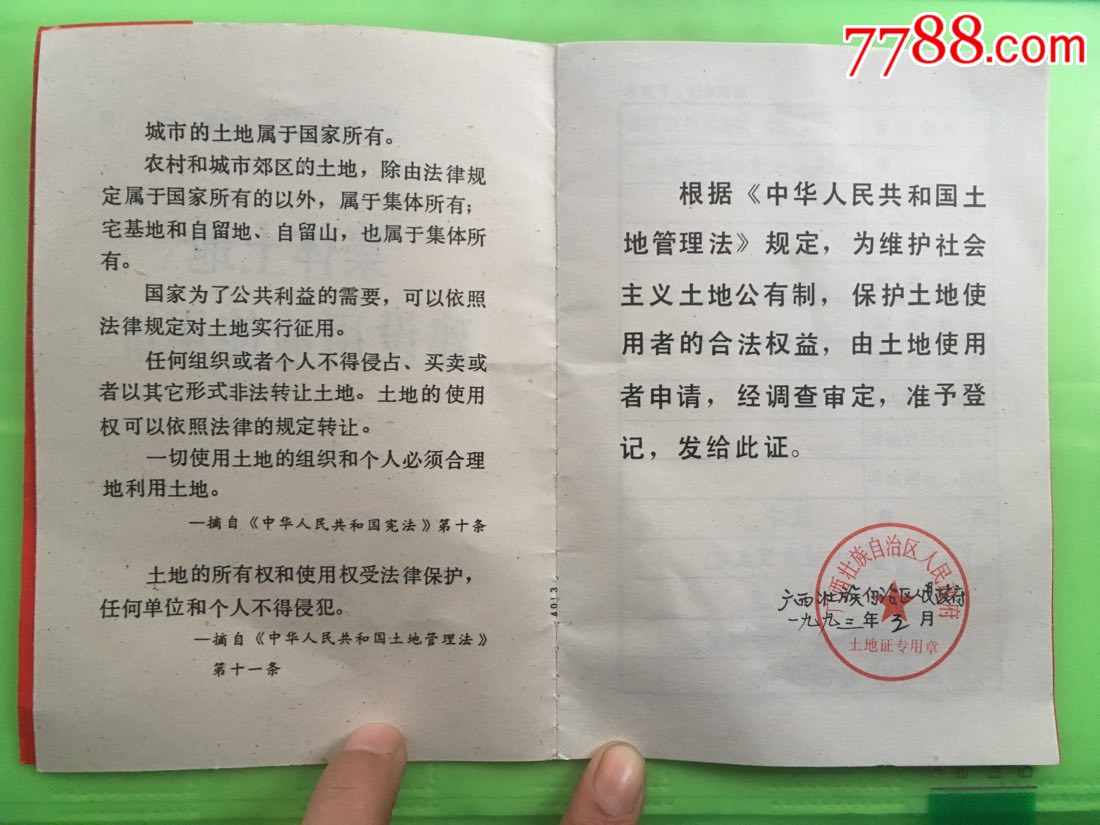 7788.com
城市的土地属于国家所有。
农村和城市郊区的土地，除由法律规
定属于国家所有的以外，属于集体所有；
宅基地和自留地、自留山，也属于集体所
有。
国家为了公共利益的需要，可以依照
法律规定对土地实行征用。
任何组织或者个人不得侵占、买卖或
者以其它形式非法转让土地。土地的使用
权可以依照法律的规定转让。
一切使用土地的组织和个人必须合理
地利用土地。
—摘自《中华人民共和国宪法》第十条
土地的所有权和使用权受法律保护，
任何单位和个人不得侵犯。
—摘自《中华人民共和国土地管理法》
第十一条
根据《中华人民共和国土
地管理法》规定，为维护社会
主义土地公有制，保护土地使
用者的合法权益，由土地使用
者申请，经调查审定，准予登
记，发给此证。
广西壮族自治区人民政府
广西壮族自治区人民政府
一九九三年三月
土地证专用章